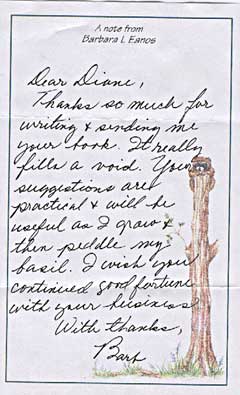 A note from
Barbara L Eanos
Dear Diane,
Thanks so much for
writing & sending me
your book. It really
fills a void. Your
suggestions are
practical & will be
useful as I grow &
then peddle my
basil. I wish you
continued good fortune
with your business
With thanks,
Barb